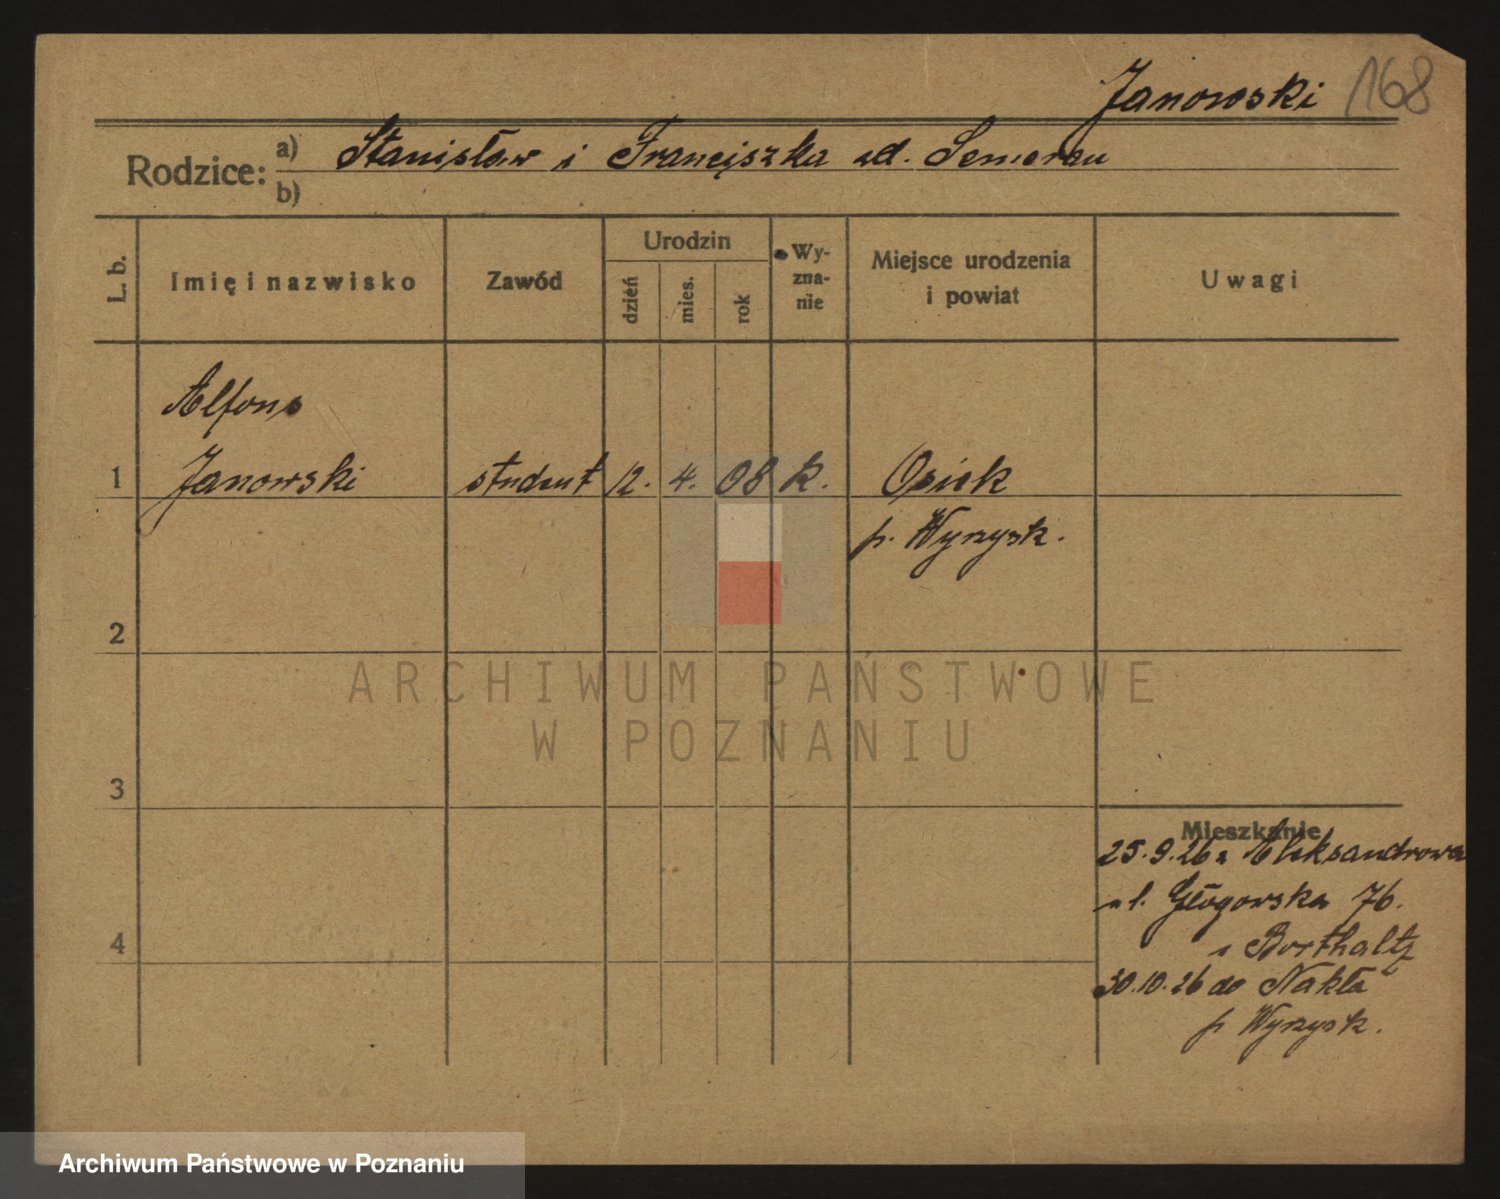 Janowski 168
Rodzice: a) Stanisław i Franciszka zd.
b)
L. b.
Imię i nazwisko
Zawód
Urodzin
dzień
mies.
rok
Wy-
zna-
nie
Miejsce urodzenia
i powiat
Uwagi
Alfons
1 Janowski student 12. 4. 08 k. Osiek
p. Wyrzysk.
2
3
4
Mieszkanie
25.9.26 z Aleksandrowa
ul. Głogorska 76.
30.10.26 do Nakła
p Wyrzysk.
ARCHIWUM PAŃSTWOWE
W POZNANIU
Archiwum Państwowe w Poznaniu